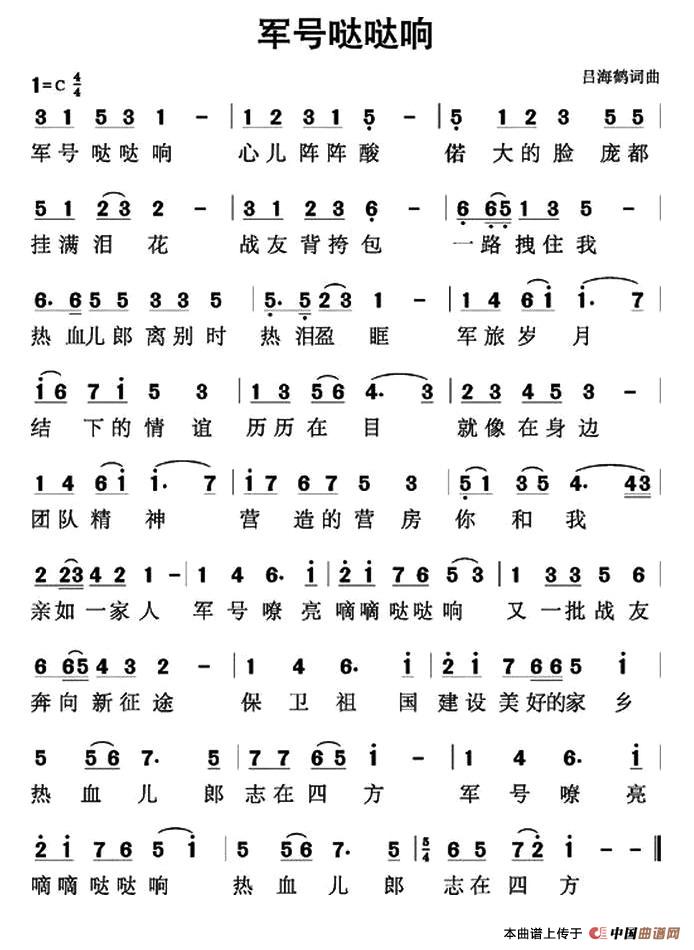 军号哒哒响
1=C 4/4 吕海鹤词曲
3 1 5 3 1 - | 1 2 3 1 5 - | 5 1 2 3 5 5 |
军号哒哒响 心儿阵阵酸 偌大的脸庞都
5 1 2 3 2 - | 3 1 2 3 6 - | 6 6 5 1 3 5 - |
挂满泪花 战友背挎包 一路拽住我
6. 6 5 5 3 3 5 | 5. 5 2 3 1 - | 1 4 6 i i. 7 |
热血儿郎离别时 热泪盈眶 军旅岁月
i 6 7 i 5 3 | 1 3 5 6 4. 3 | 2 3 4 5 3 - |
结下的情谊 历历在目 就像在身边
1 4 6 i i. 7 | i 7 6 7 5 3 | 5 1 3 5 4. 4 3 |
团队精神 营造的营房你和我
2 2 3 4 2 1 - | 1 4 6. i | 2 i 7 6 5 3 | 3 3 5 6 |
亲如一家人 军号嘹亮嘀嘀哒哒响 又一批战友
6 6 5 4 3 2 - | 1 4 6. i | 2 i 7 6 6 5 i |
奔向新征途 保卫祖国建设美好的家乡
5 5 6 7. 5 | 7 7 6 5 i - | 1 4 6. i |
热血儿郎志在四方 军号嘹亮
2 i 7 6 5 i | 5 5 6 7. 5 | 5/4 6 5 7 2 i - - ‖
嘀嘀哒哒响 热血儿郎 志在四方
本曲谱上传于 中国曲谱网